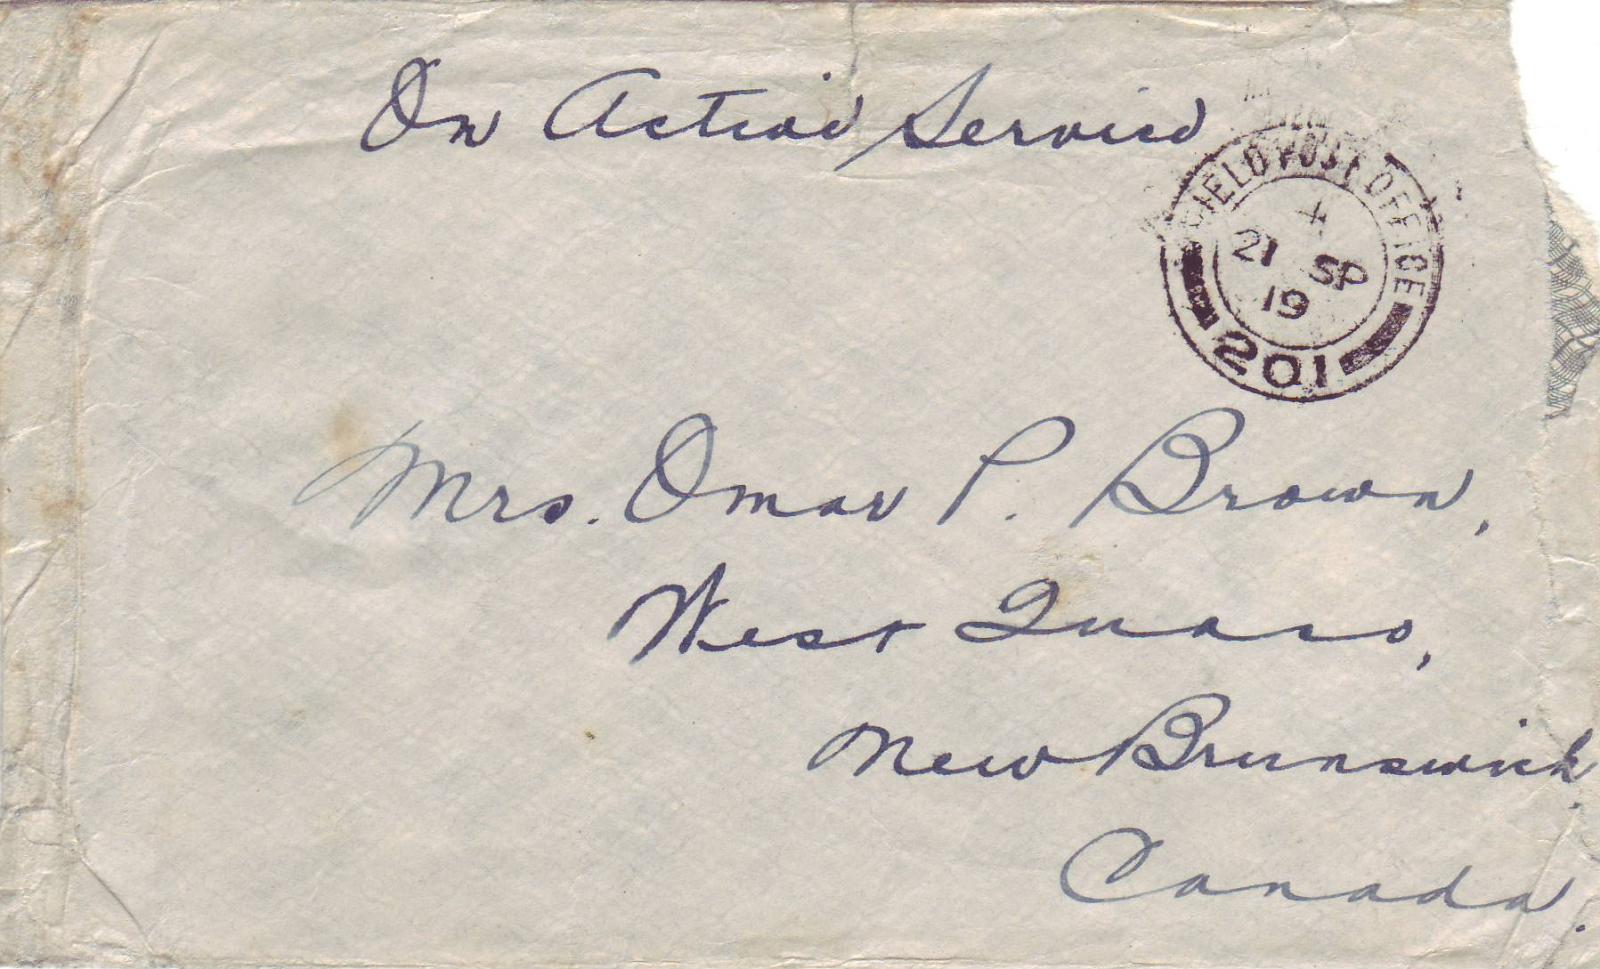 On Active Service
FIELD POST OFFICE
X
21 SP
19
201
Mrs. Omar P. Brown,
West Quaco,
New Brunswick.
Canada.